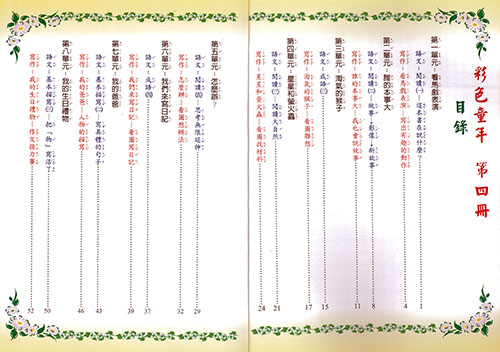 彩色童年 第四冊
目錄
第一單元：看馬戲表演
語文：閱讀㈠ 這本書在說什麼？ 1
寫作：看馬戲表演 寫出有趣的動作 4
第二單元：誰的本事大
語文：閱讀㈡ 故事、影像、新故事 8
寫作：誰的本事大－我也會說故事 11
第三單元：淘氣的猴子
語文：成語㈢ 15
寫作：淘氣的猴子－看圖聯想 17
第四單元：星星和螢火蟲
語文：閱讀㈢ 閱讀大自然 21
寫作：星星和螢火蟲－看圖找材料 24
第五單元：怎麼辦？
語文：閱讀㈣ 思考無限延伸 29
寫作：怎麼辦－看圖想辦法 32
第六單元：我們來寫日記
語文：成語㈣ 37
寫作：我們來寫日記－看圖寫日記 39
第七單元：我的爸爸
語文：基本描寫㈡ 寫具體的句子 43
寫作：我的爸爸－人物的描寫 46
第八單元：我的生日禮物
語文：基本描寫㈢ 把「物」寫活了 50
寫作：我的生日禮物－作文接力賽 52